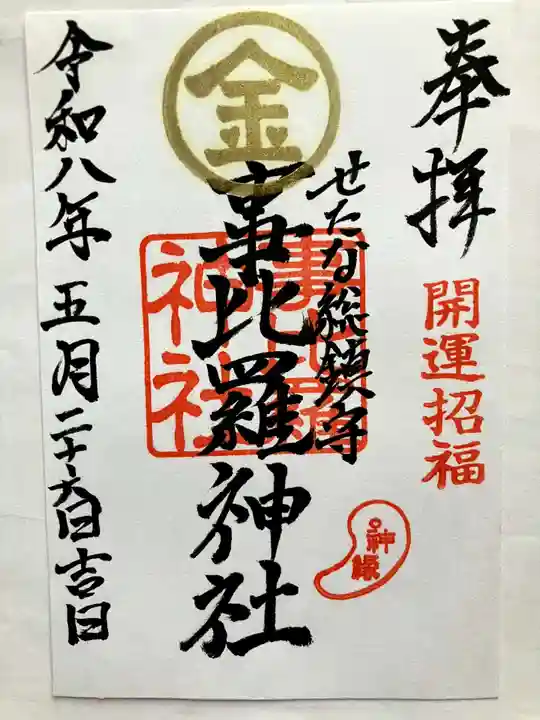 奉拝
開運招福
せたな総鎮守
金
事比羅神社
事比羅
神社
神縁
令和八年五月二十六日吉日